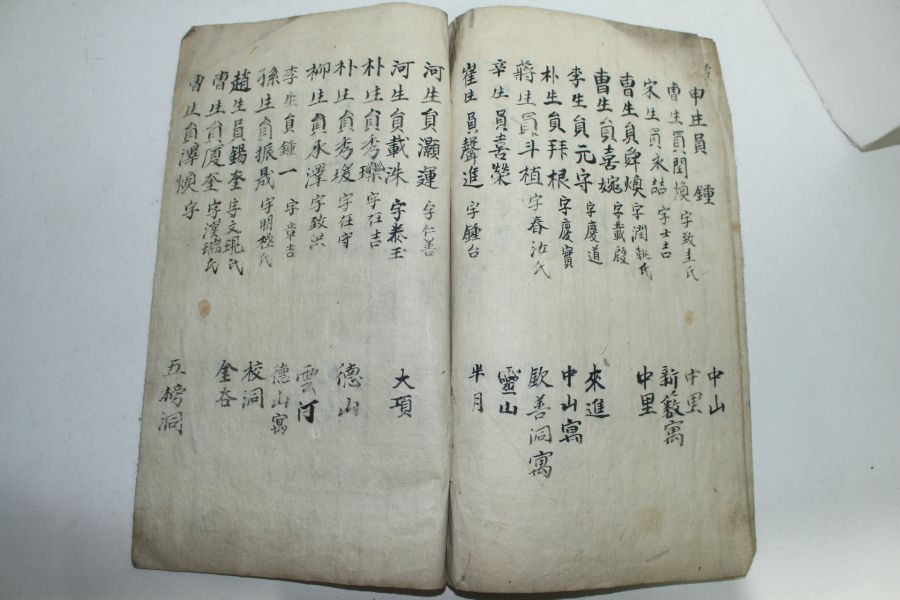 申生員 鍾 中山
曺生員閏煥 字致圭氏 中里
宋生員永喆 字士吉 新籔寓
曺生員舜煥 字潤 氏 中里
曺生員喜婉 字載殷
李生員元守 字慶道 來進
朴生員拜根 字慶實 中山寓
蔣生員斗植 字春 氏 歐善洞寓
辛生員喜榮 靈山
崔生員聲進 字鍾台 半月
河生員灝蓮 字仁善
河生員載洙 字 玉 大項
朴生員秀瓅 字在吉
朴生員秀瑗 字在守 德山
柳生員永澤 字致洪
李生員鍾一 字章吉 雲河
孫生員振晟 字明極氏 德山寓
趙生員錫奎 字文琨氏 校洞
曺生員廈奎 字漢瑞氏 金谷
曺生員澤煥 字 五榜洞